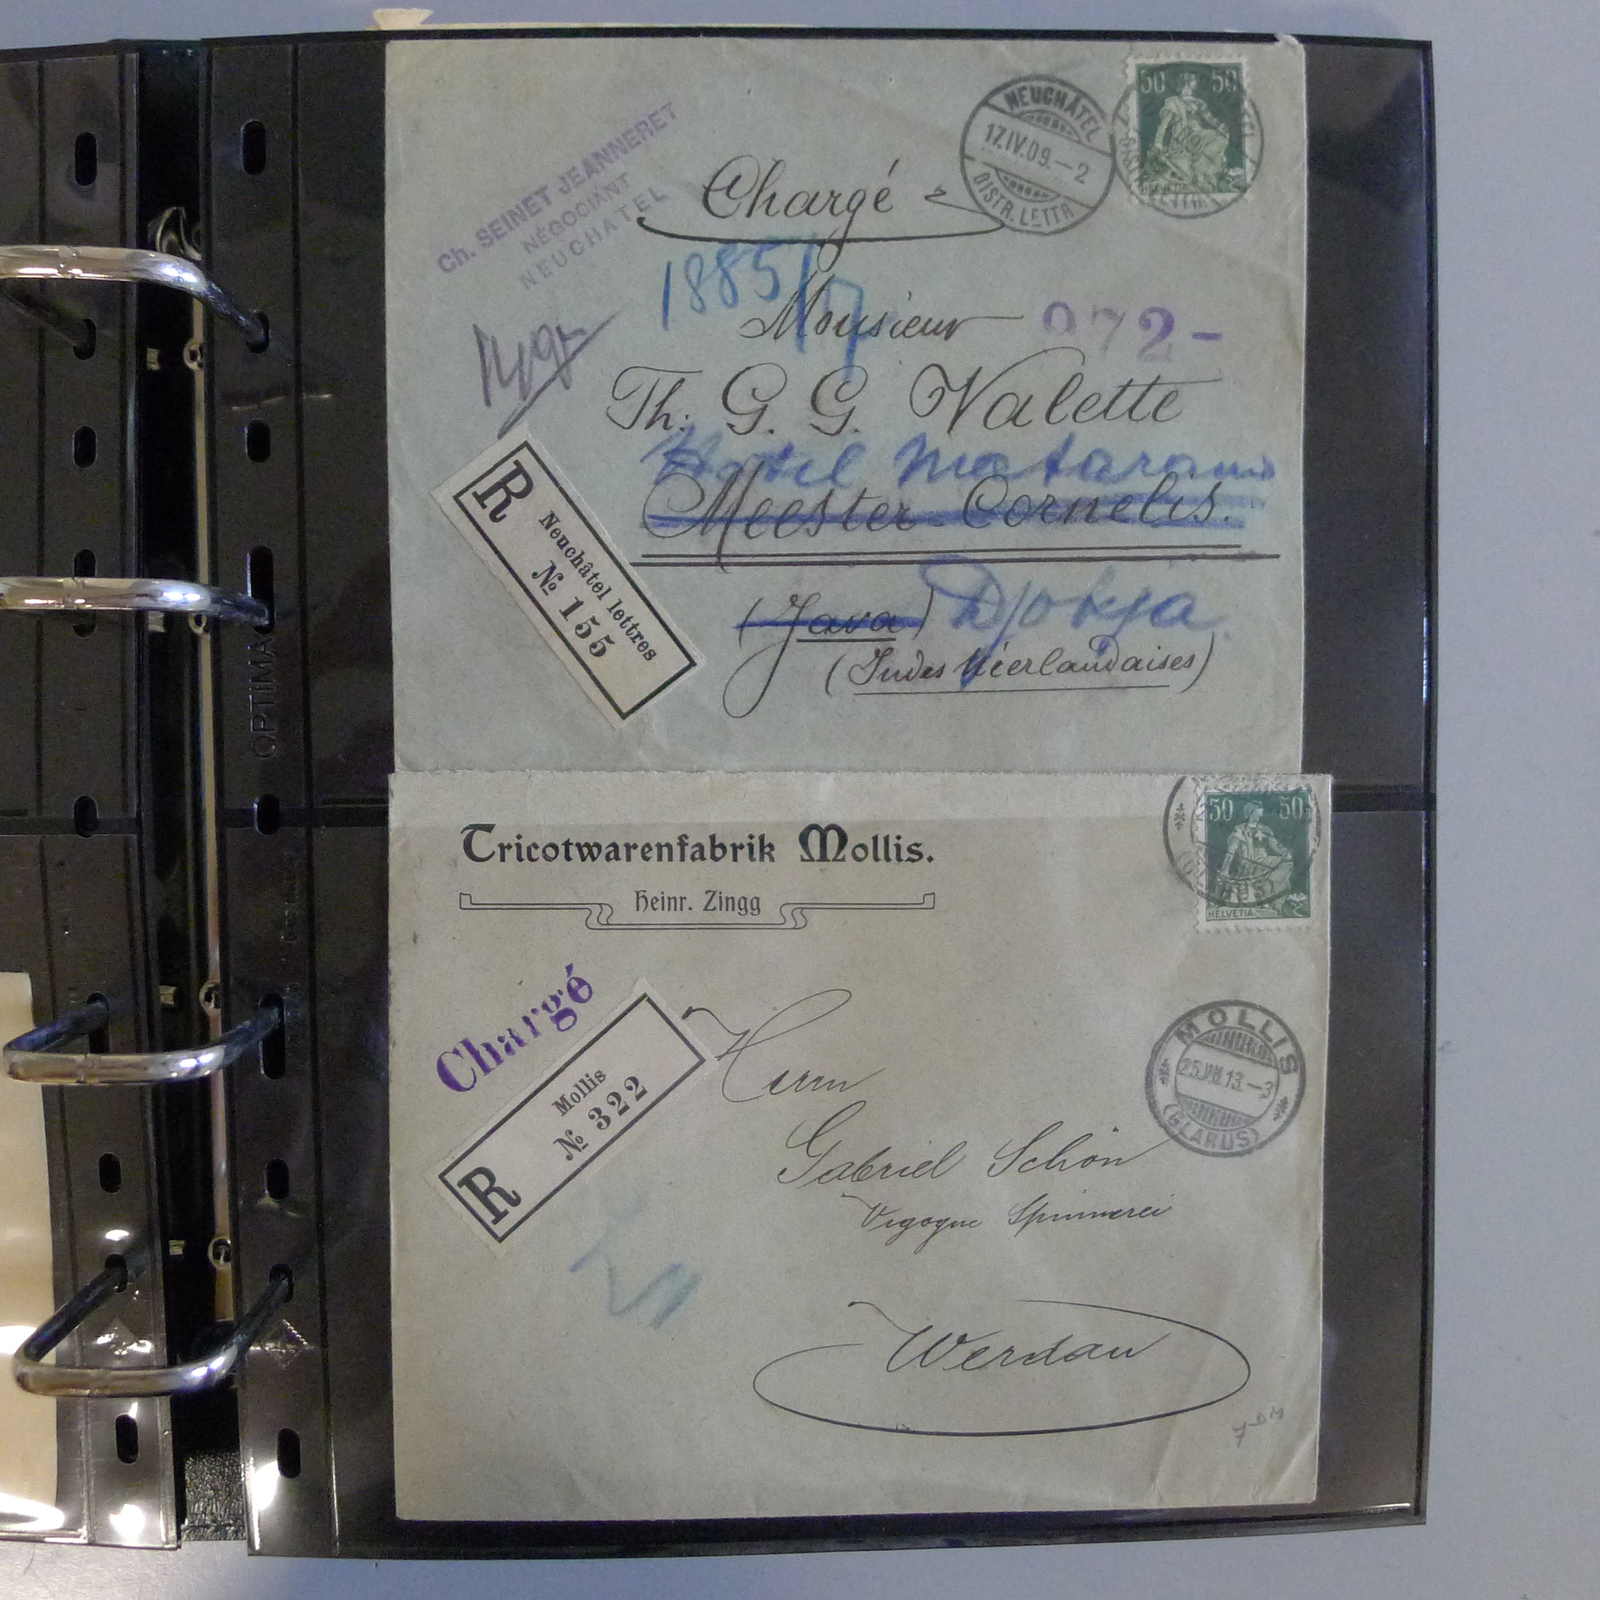 Ch. SEINET JEANNERET
NÉGOCIANT
NEUCHATEL
NEUCHÂTEL
17.IV.09.–2
DISTR. LETTR.
50 50
Chargé
1885/17
Monsieur
972-
Th: G. G. Valette
Hotel Mataram
Meester-Cornelis.
(Java) Djokja.
(Indes Néerlandaises)
R
Neuchâtel lettres
№ 155
OPTIMA
Tricotwarenfabrik Mollis.
Heinr. Zingg
50 50
HELVETIA
Chargé
R
Mollis
№ 322
MOLLIS
25.VII.13.–3
(GLARUS)
Herrn
Gabriel Schön
Vigogne Spinnerei
Werdau